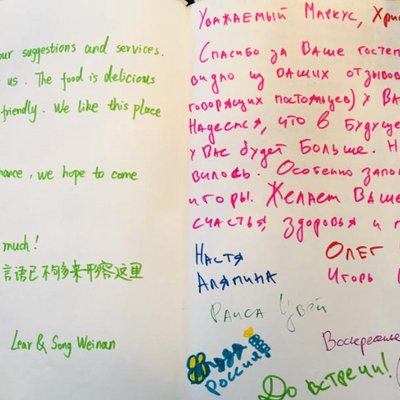 our suggestions and services.
us. The food is delicious
friendly. We like this place
hance, we hope to come
much!
言语已不够多来形容这里
Lear & Song Weinan
Уважаемый Маркус, Хрис
Спасибо за Ваше гостеп
видно из Ваших отзывов
говорящих постояльцев) у Ва
Надеемся, что в будуще
у Вас будет больше. Н
вилось. Особенно запо
и горы. Желаем Ваше
счастья, здоровья и п
Настя
Аляпина
Олег
Игорь
Раиса
Россия
Воскресен
До встречи!